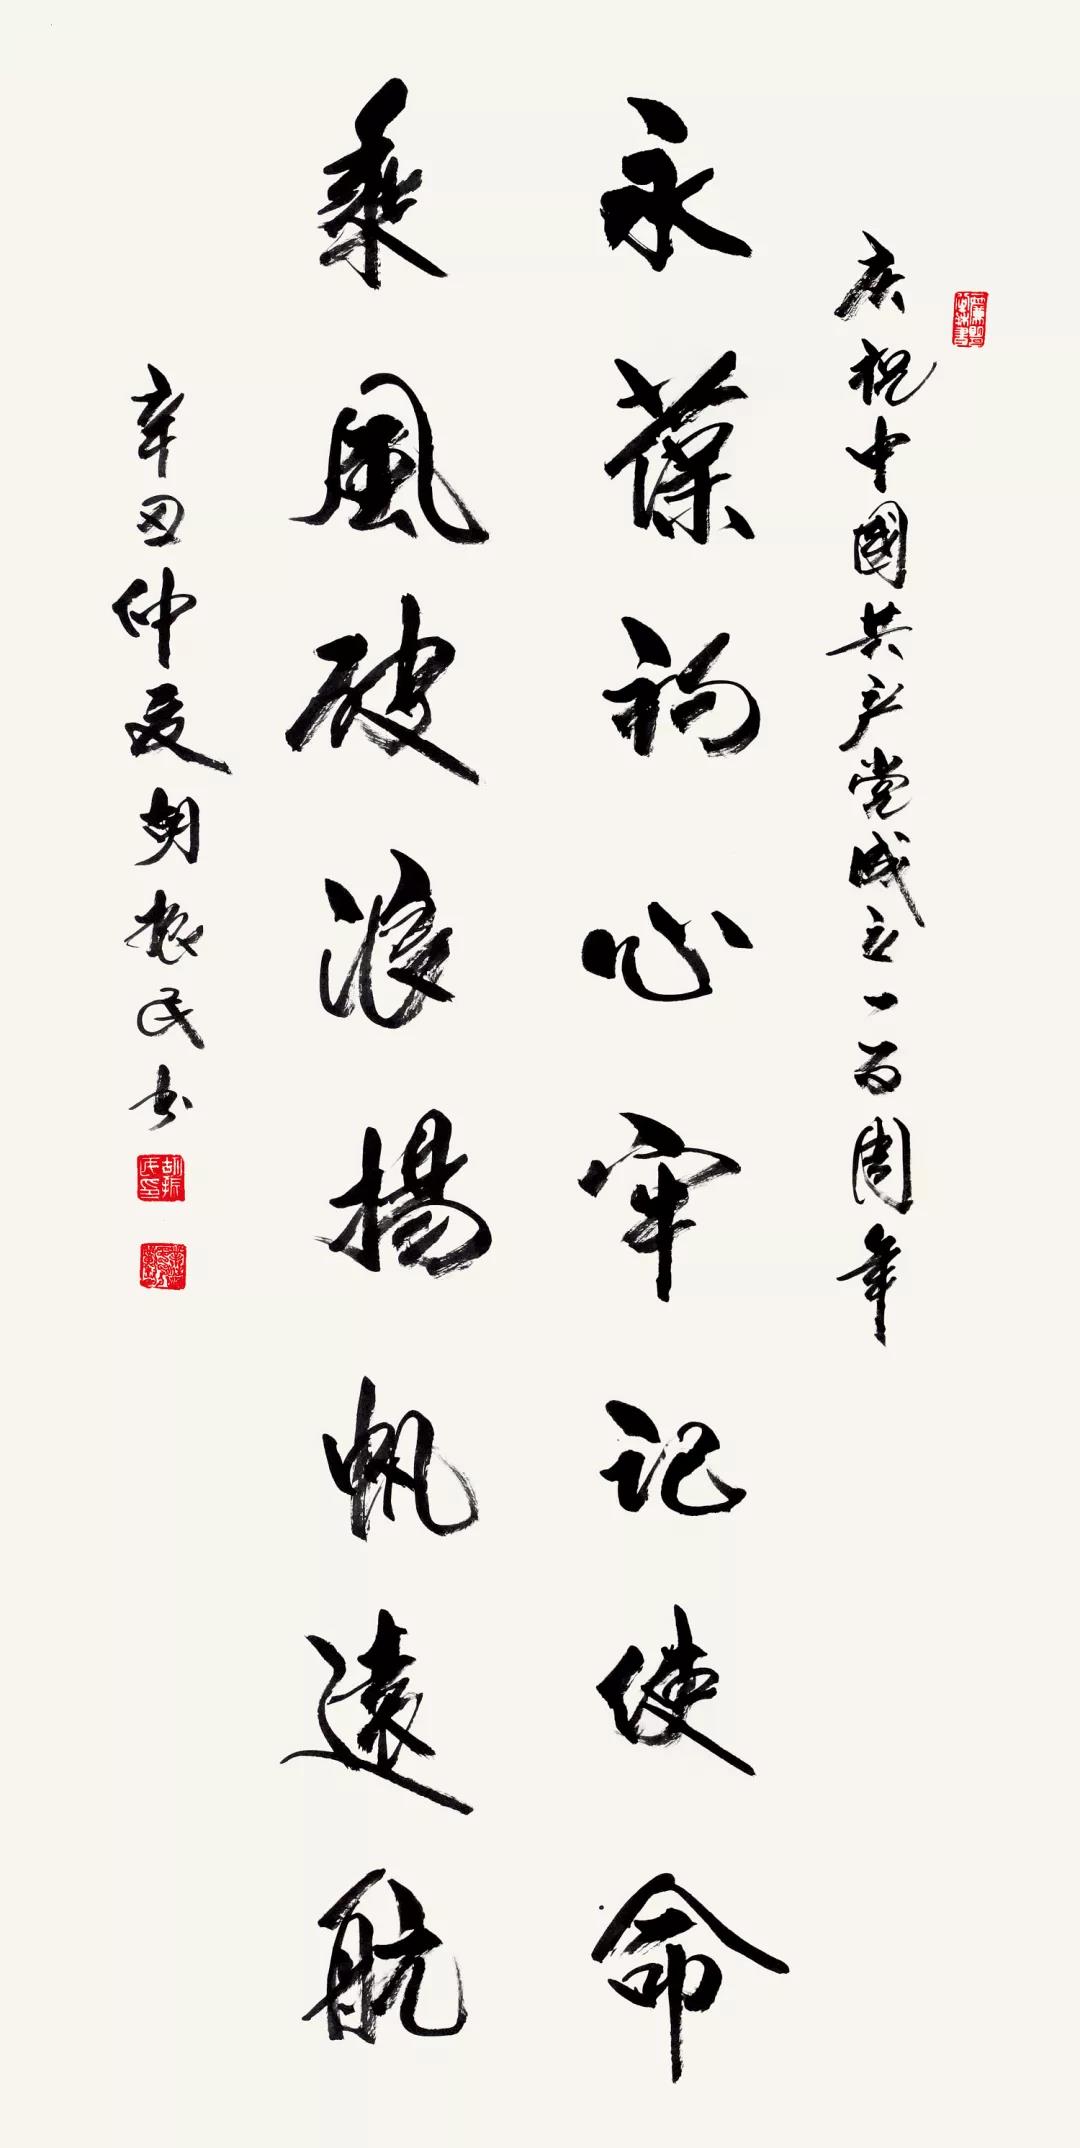 庆祝中國共产党成立一百周年
永葆初心牢记使命
乘風破浪揚帆遠航
辛丑仲夏胡振民书
胡振民印